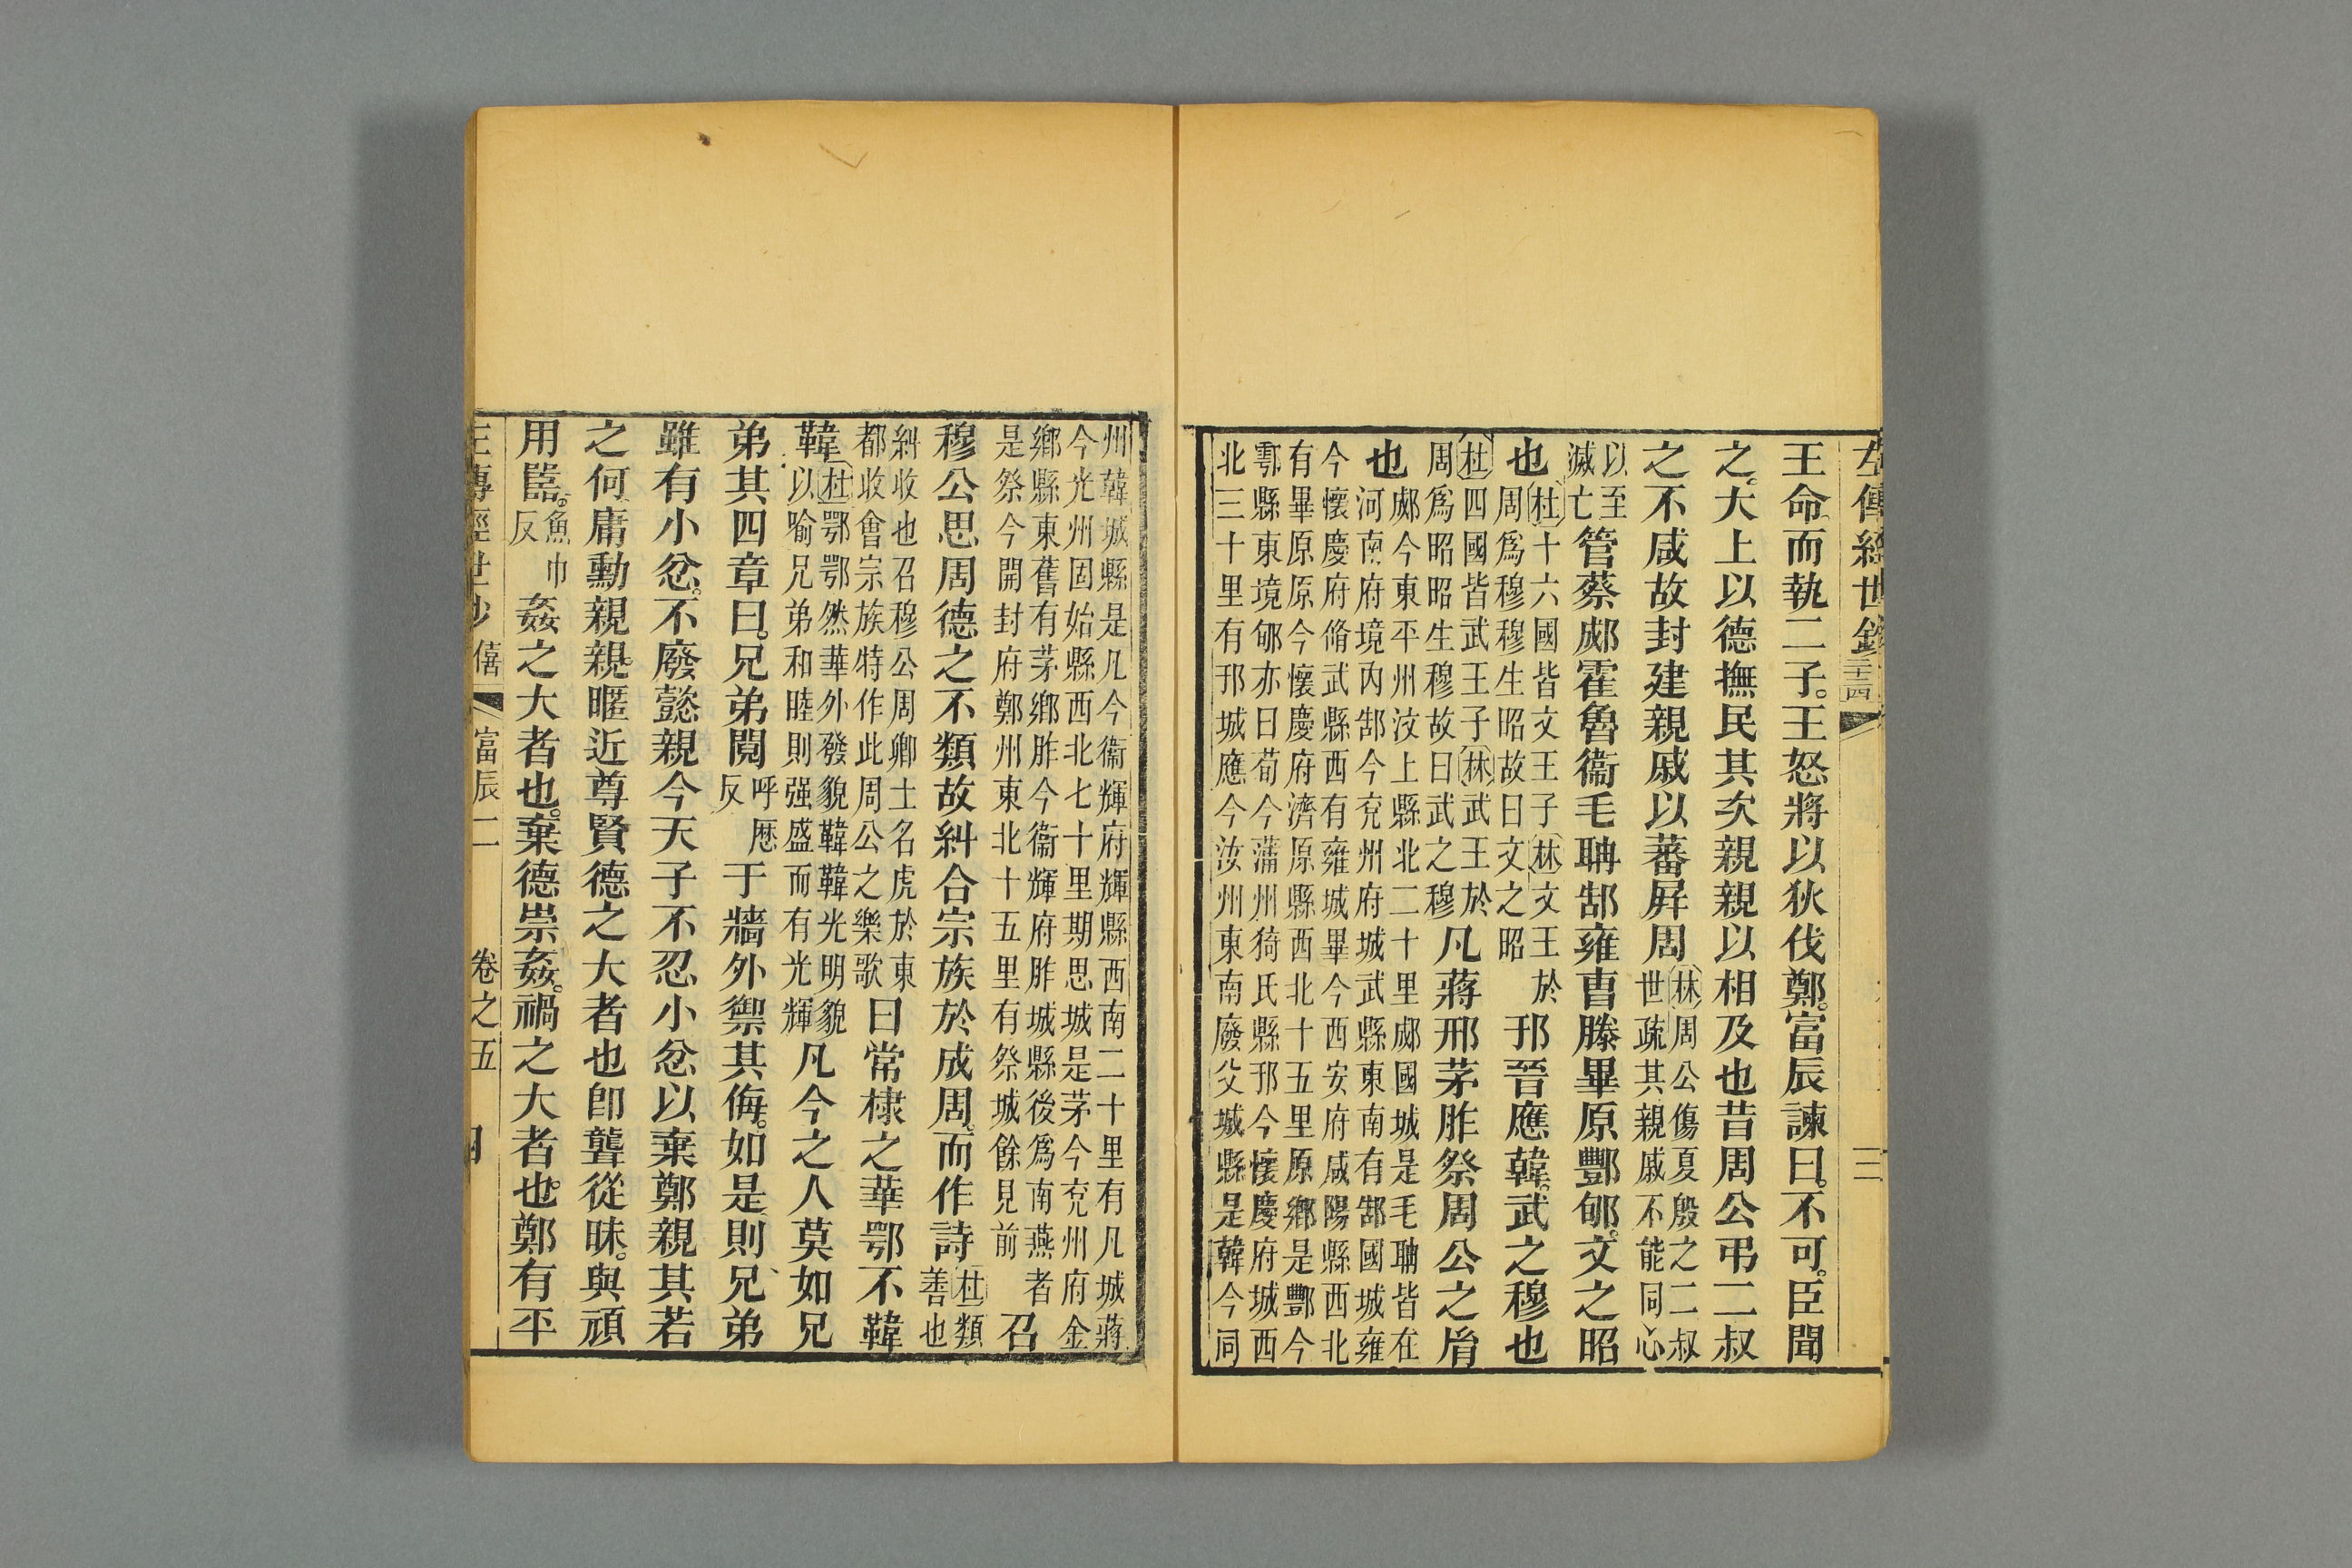 左傳經世鈔 三十四 三
王命而執二子。王怒將以狄伐鄭。富辰諫曰。不可。臣聞
之。大上以德撫民其次親親以相及也昔周公弔二叔
之不咸故封建親戚以蕃屛周
林周公傷夏殷之二叔
世疏其親戚不能同心
以至
滅亡
管蔡郕霍魯衞毛聃郜雍曺滕畢原酆郇。文之昭
也
杜十六國皆文王子林文王於
周爲穆穆生昭故曰文之昭
邘晉應韓。武之穆也
杜四國皆武王子林武王於
周爲昭昭生穆故曰武之穆
凡蔣邢茅胙祭周公之胤
也
郕今東平州汶上縣北二十里郕國城是毛聃皆在
河南府境内郜今兗州府城武縣東南有郜國城雍
今懷慶府脩武縣西有雍城畢今西安府咸陽縣西北
有畢原原今懷慶府濟原縣西北十五里原鄉是酆今
鄠縣東境郇亦曰荀今蒲州猗氏縣邘今懷慶府城西
北三十里有邘城應今汝州東南廢父城縣是韓今同
州韓城縣是凡今衞輝府輝縣西南二十里有凡城蔣
今光州固始縣西北七十里期思城是茅今兗州府金
鄉縣東舊有茅鄉胙今衞輝府胙城縣後爲南燕者
是祭今開封府鄭州東北十五里有祭城餘見前
召
穆公思周德之不類故糾合宗族於成周。而作詩
杜類
善也
糾收也召穆公周卿士名虎於東
都收會宗族特作此周公之樂歌
曰常棣之華鄂不韡
韡
杜鄂鄂然華外發貌韡韡光明貌
以喻兄弟和睦則强盛而有光輝
凡今之人莫如兄
弟其四章曰。兄弟鬩
呼厯
反
于牆外禦其侮。如是、則兄弟
雖有小忿。不廢懿親今天子不忍小忿以棄鄭親其若
之何庸勳親親。暱近尊賢德之大者也卽聾從昧。與頑
用嚚。
魚巾
反
姦之大者也。棄德崇姦。禍之大者也。鄭有平
左傳經世鈔 僖 富辰二 卷之五 四